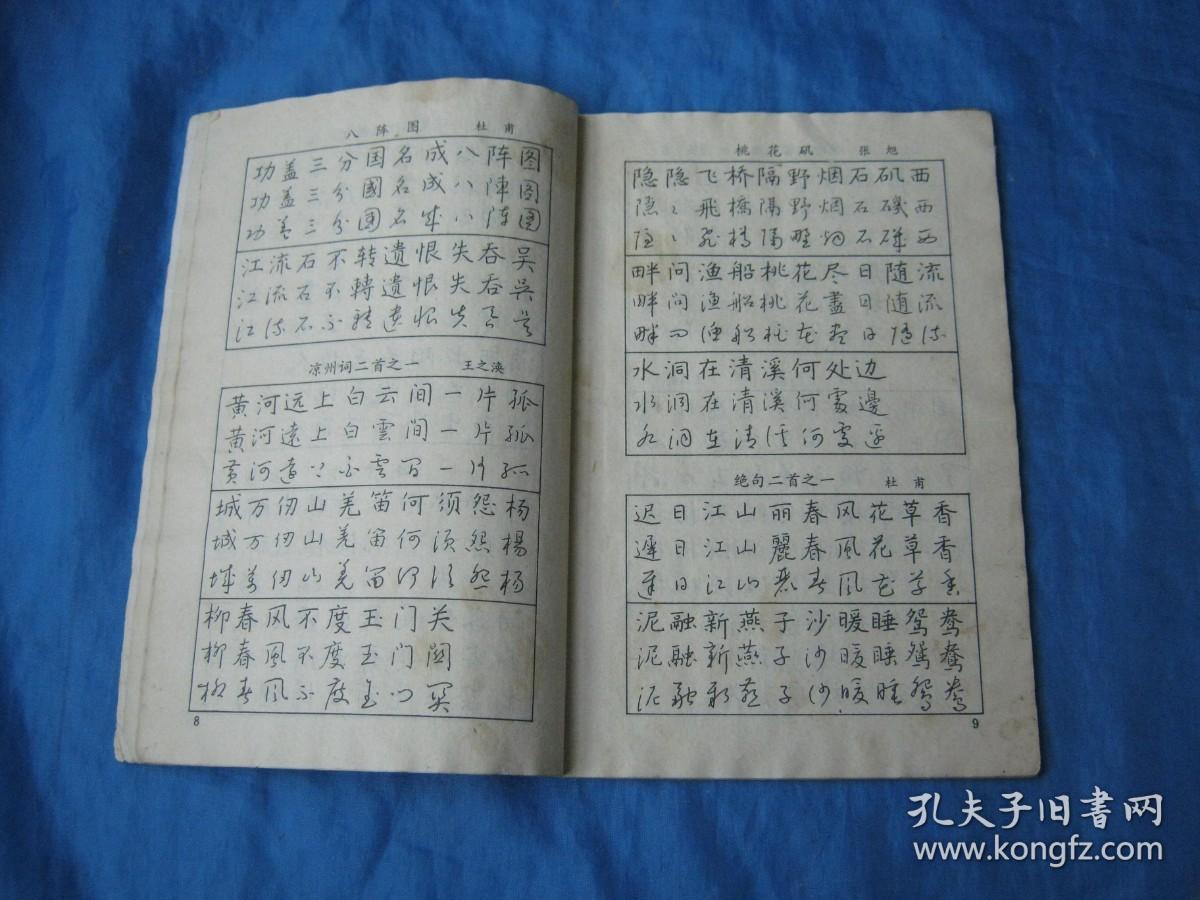 八阵图 杜甫
功盖三分国名成八阵图
功盖三分國名成八陣圖
功盖三分国名成八阵图
江流石不转遗恨失吞吴
江流石不轉遗恨失吞吴
江流石不转遗恨失吞吴
凉州词二首之一 王之涣
黄河远上白云间一片孤
黄河遠上白雲间一片孤
黄河遠上白雲间一片孤
城万仞山羌笛何须怨杨
城万仞山羌笛何须怨楊
城萬仞山羌笛何须怨杨
柳春风不度玉门关
柳春風不度玉门関
柳春风不度玉门关
8
桃花矶 张旭
隐隐飞桥隔野烟石矶西
隐〻飛橋隔野烟石磯西
隐〻飞桥隔野烟石矶西
畔问渔船桃花尽日随流
畔问渔船桃花盡日随流
畔问渔船桃花尽日随流
水洞在清溪何处边
水洞在清溪何處邊
水洞在清溪何处边
绝句二首之一 杜甫
迟日江山丽春风花草香
遲日江山麗春風花草香
迟日江山丽春风花草香
泥融新燕子沙暖睡鸳鸯
泥融新燕子沙暖睡鴛鴦
泥融新燕子沙暖睡鸳鸯
9
孔夫子旧书网
www.kongfz.com